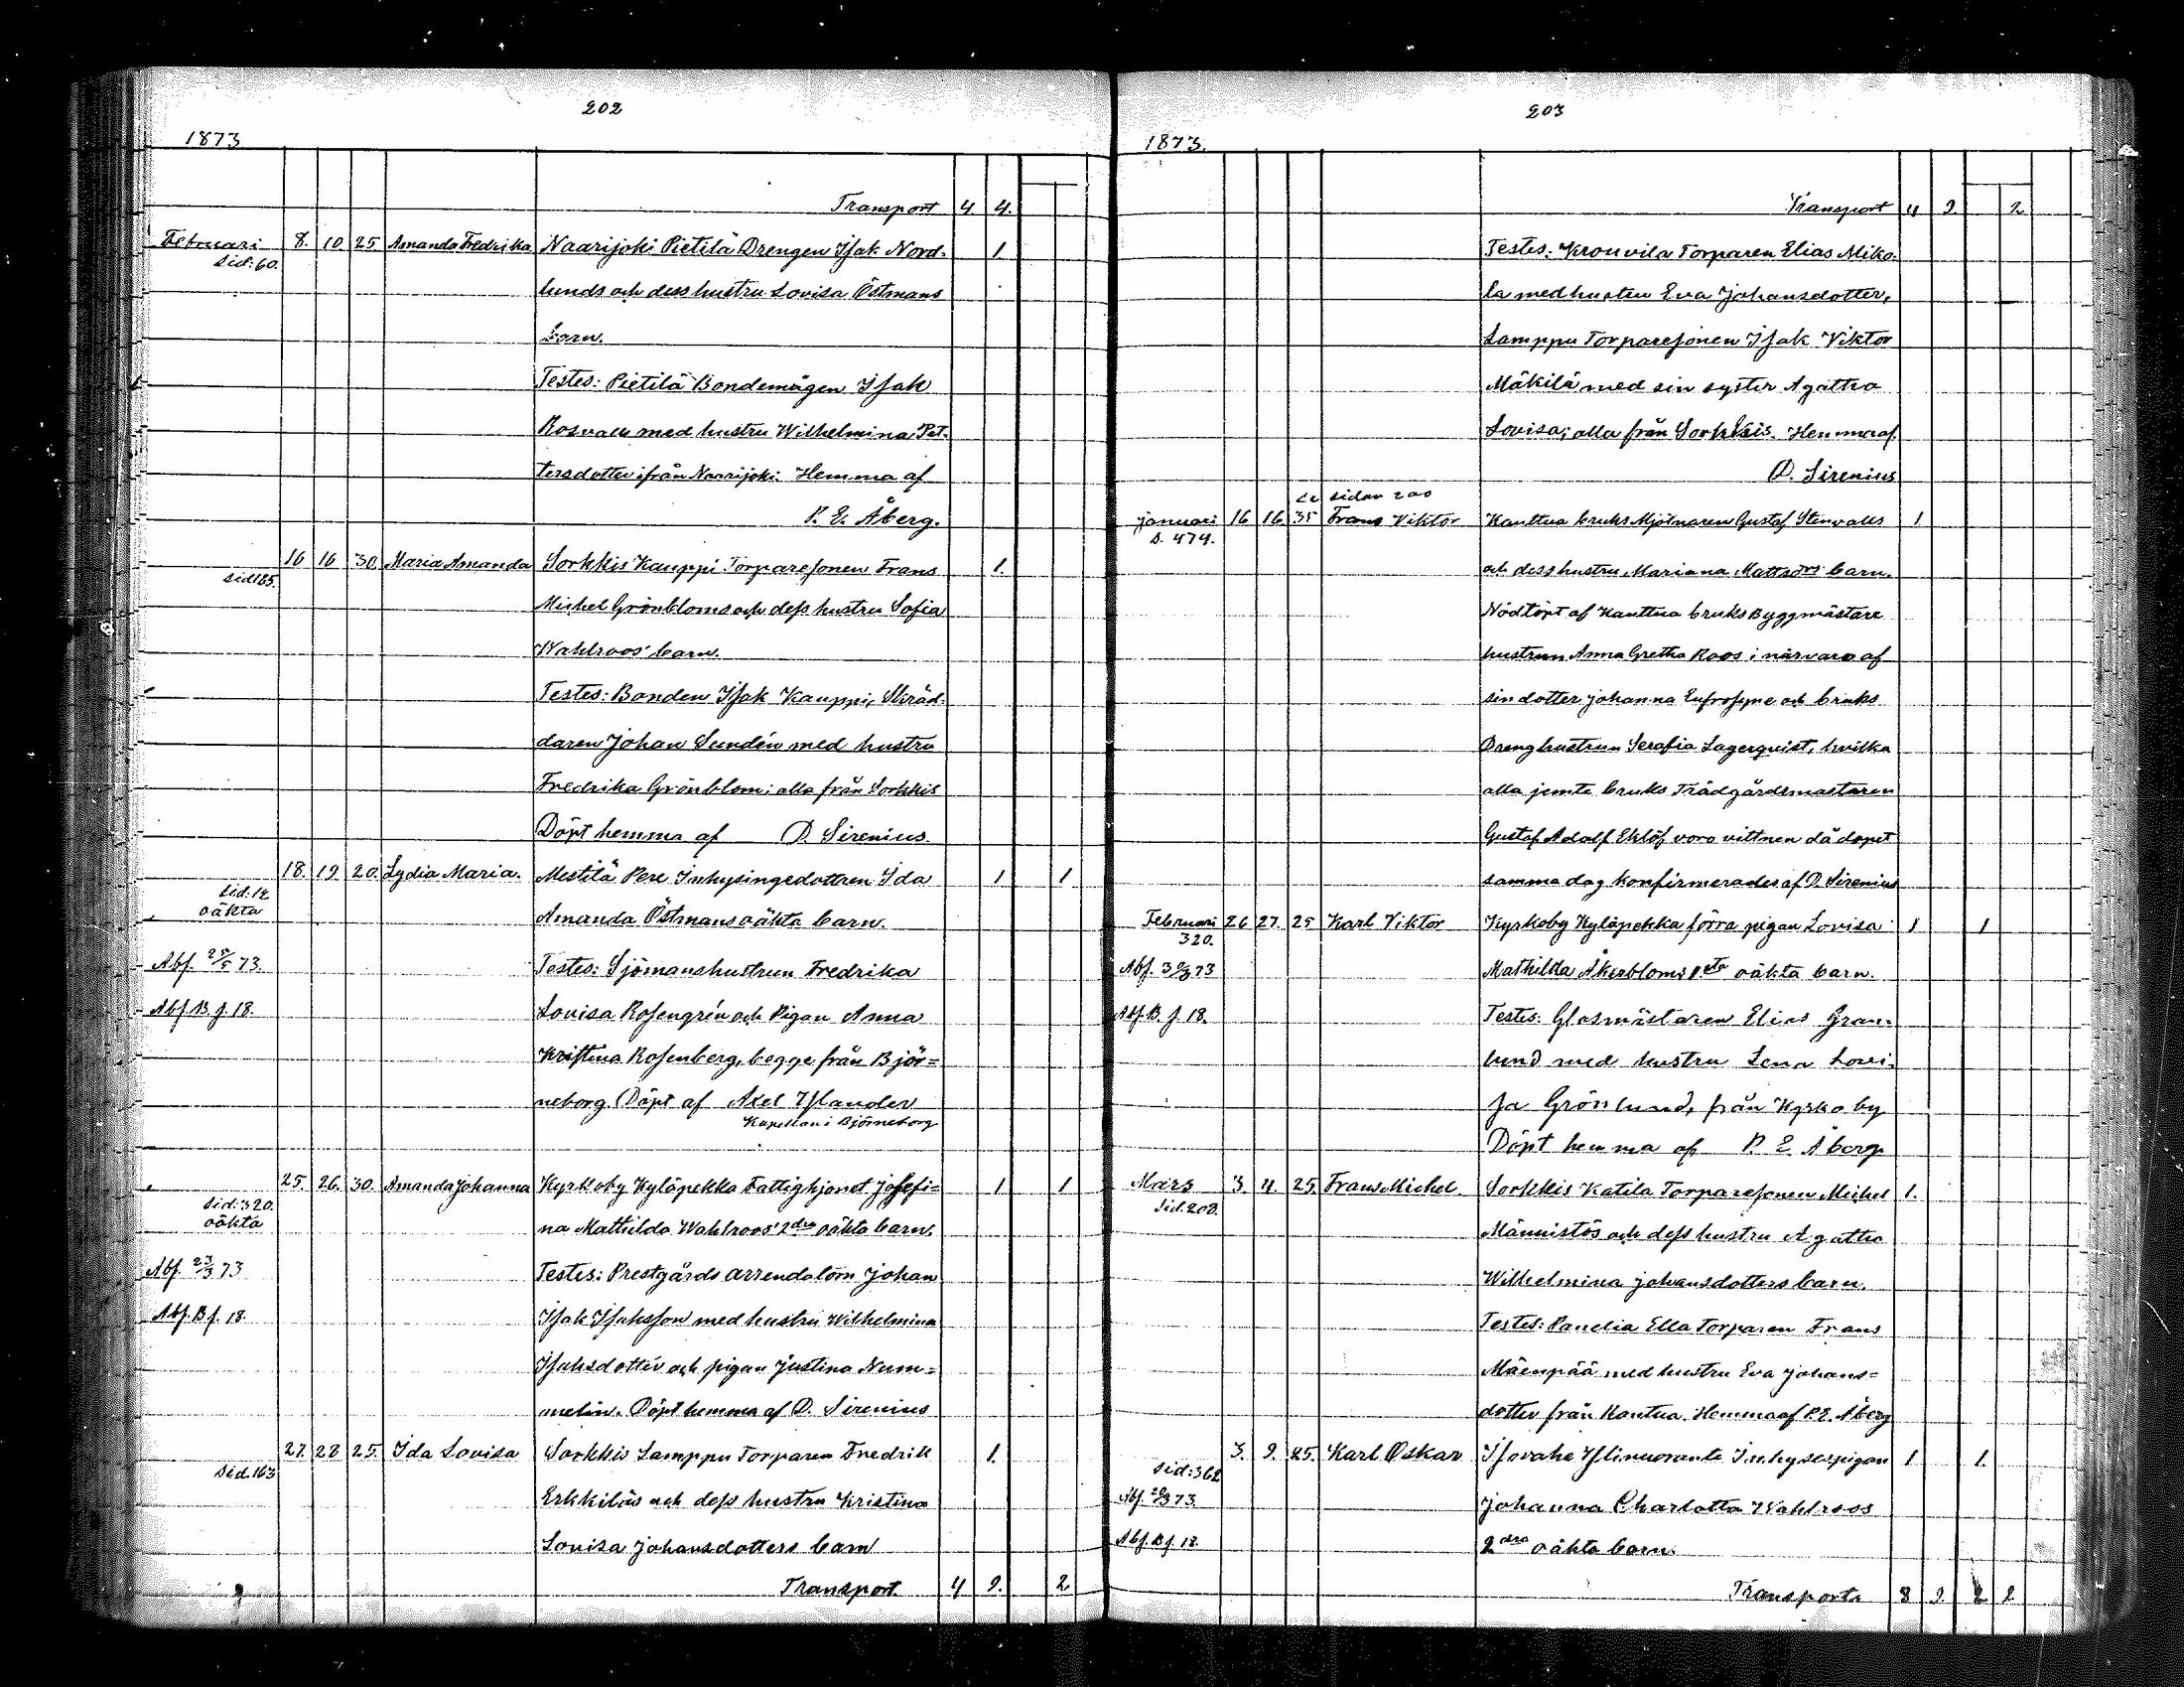 202
1873
Transport 4 4.
Februari 8. 10. 25 Amanda Fredrika Naarijoki Pietilä Drengen Isak Nord- 1
Sid: 60.
lunds och dess hustru Lovisa Östmans
barn.
Testes: Pietilä Bondemågen Isak
Rosvall med hustru Wilhelmina Pet-
tersdotter ifrån Naarijoki. Hemma af
P. E. Åberg.
16 16 30 Maria Amanda Sorkkis Kauppi Torparesonen Frans 1.
Sid 185.
Michel Grönbloms och dess hustru Sofia
Wahlroos' barn.
Testes: Bonden Isak Kauppi, Skräd-
daren Johan Sundén med hustru
Fredrika Grönblom; alla från Sorkkis
Döpt hemma af D. Sirenius.
18. 19. 20. Lydia Maria. Mestilä Pere Inhysingedottren Ida 1 1
Sid. 12
oäkta
Amanda Östmans oäkta barn.
Abf. 25/5 73. Testes: Sjömanshustrun Fredrika
Abf. B. f. 18. Lovisa Rosengrén och Pigan Anna
Kristina Rosenberg, begge från Björ=
neborg. Döpt af Axel Islander
Kapellan i Björneborg
25. 26. 30. Amanda Johanna Kyrkoby Kyläpekka Fattighjonet Josefi= 1 1
Sid: 320.
oäkta
na Mathilda Wahlroos' 2dra oäkta barn.
Abf. 23/3 73 Testes: Prestgårds arrendatorn Johan
Abf. B f. 18. Isak Isaksson med hustru Wilhelmina
Isaksdotter och pigan Justina Num=
melin. Döpt hemma af D. Sirenius
27. 28 25. Ida Lovisa Sorkkis Lamppu Torparen Fredrik 1.
Sid. 163
Erkkiläs och dess hustru Kristina
Lovisa Johansdotters barn
Transport. 4 9. 2
203
1873.
Transport 4 9. 2.
Testes: Krouvila Torparen Elias Miko-
la med hustru Eva Johansdotter,
Lamppu Torparesonen Isak Viktor
Mäkilä med sin syster Agatha
Lovisa; alla från Sorkkis. Hemma af
D. Sirenius
se sidan 200
Januari 16 16 35 Frans Viktor Kauttua bruks Mjölnaren Gustaf Stenvalls 1
S. 474.
och dess hustru Mariana Mattsdrs barn.
Nödtöpt af Kauttua bruks Byggmästare
hustrun Anna Gretha Roos i närvaro af
sin dotter Johanna Eufrosyne och bruks
Dreng hustrun Serafia Lagerquist, hvilka
alla jemte bruks Trädgårdsmästaren
Gustaf Adolf Eklöf voro vittnen då dopet
samma dag konfirmerades af D. Sirenius
Februari 26 27. 25 Karl Viktor Kyrkoby Kyläpekka förra pigan Lovisa 1 1
320.
Abf. 30/3 73 Mathilda Åkerbloms 1.sta oäkta barn.
Abf. B. f. 18. Testes: Glasmästaren Elias Gran-
lund med hustru Lena Lovi-
sa Grönlund, från Kyrkoby
Döpt hemma af P. E. Åberg
Mars 3. 4. 25. Frans Michel. Sorkkis Katila Torparesonen Michel 1.
Sid. 208.
Männistös och dess hustru Agatha
Wilhelmina Johansdotters barn.
Testes: Panelia Ella Torparen Frans
Mäenpää med hustru Eva Johans=
dotter från Kautua. Hemma af P. E. Åberg
3. 9. 25. Karl Oskar Isovahe Ylinuorante Inhysespigan 1 1.
Sid: 362
Abf. 20/3 73. Johanna Charlotta Wahlroos
Abf. B f. 18. 2dra oäkta barn.
Transport. 8 9. 2 2